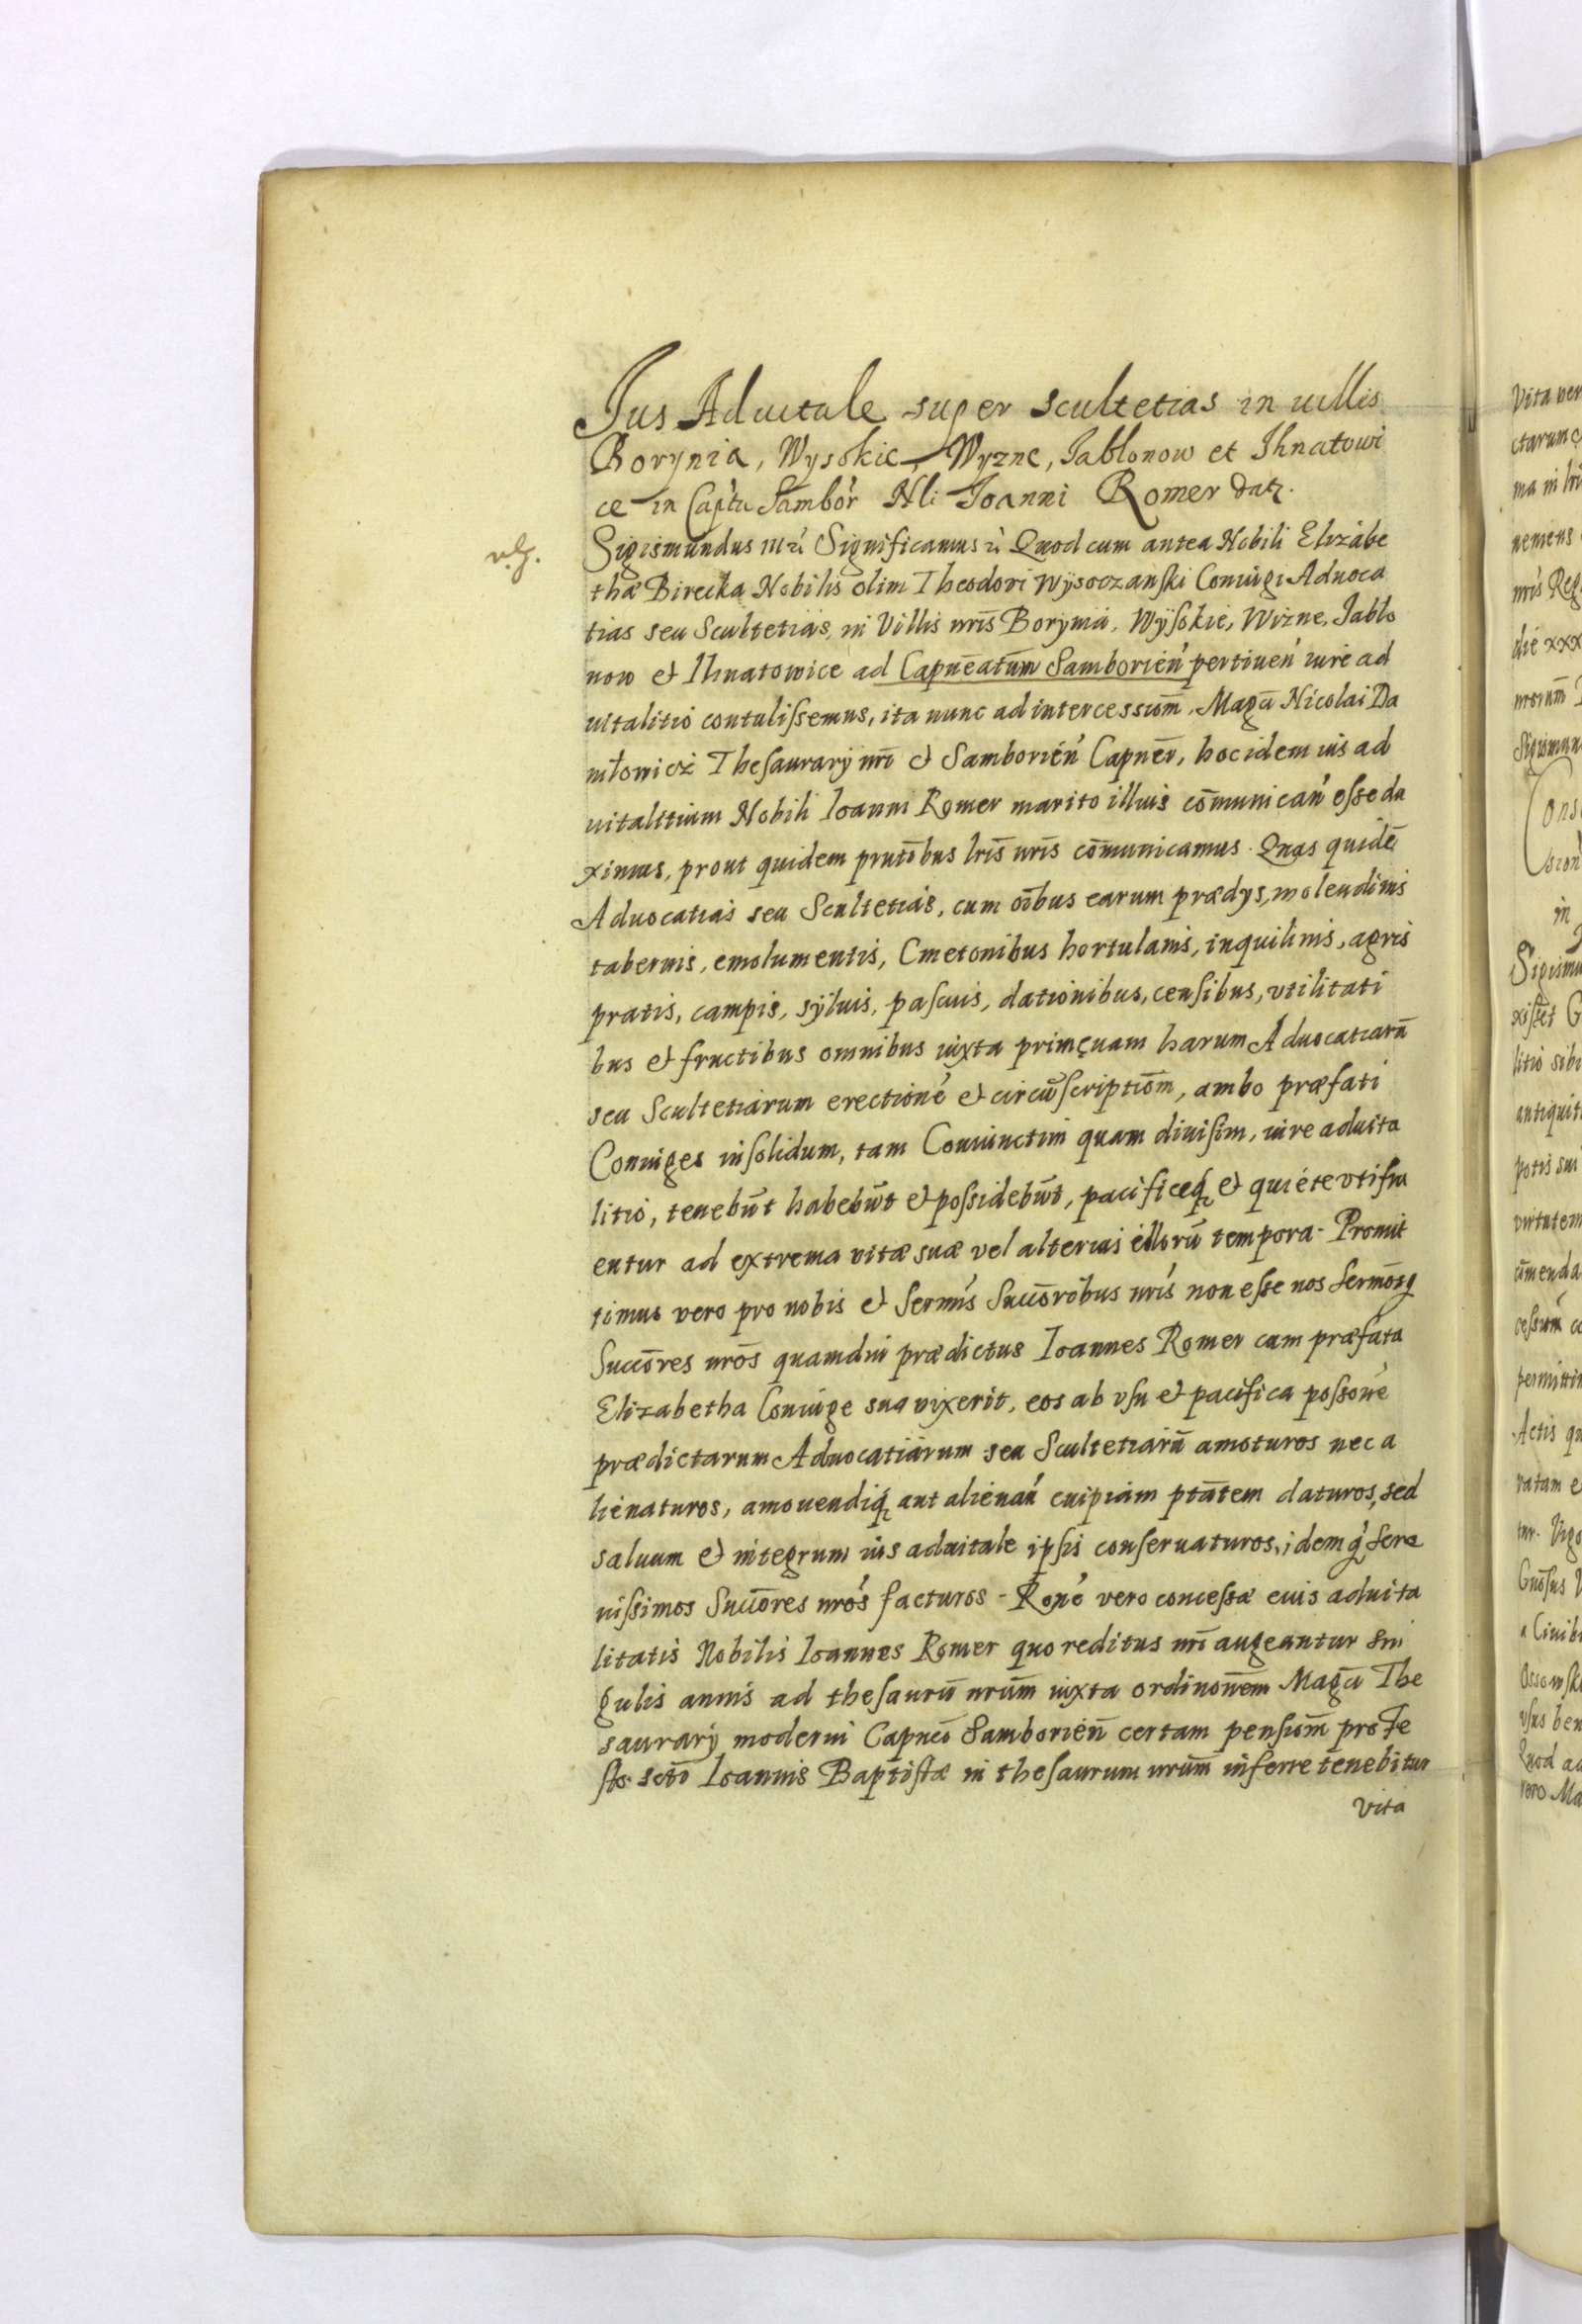 Jus Aduitale super scultetias in uillis
Borynia, Wysokie, Wyzne, Jablonow et Ihnatowi
ce in Captu Sambor Nli Joanni Romer datr.
Sigismundus Significamus Quod cum antea Nobili Elizabe
thæ Birecka Nobilis olim Theodori Wÿsoczanski Coniugi Aduoca
tias seu Scultetias, in Villis nr̄is Borÿnia, Wÿsokie, Wizne, Jablo
now et Ihnatowice ad Capnēatūm Samborien̄ pertinen̄ iure ad
uitalitio contulissemus, ita nunc ad intercessiom̄, Magci Nicolai Da
niłowicz Thesaurarÿ nr̄i et Samborien̄ Capnēi, hoc idem ius ad
uitalitium Nobili Ioanni Romer marito illius com̄unican̄ esse du
ximus, prout quidem pn̄tibus lr̄is nr̄is com̄unicamus. Quas quidē
Aduocatias seu Scultetias, cum oībus earum prædys, molendinis
tabernis, emolumentis, Cmetonibus hortulanis, inquilinis, agris
pratis, campis, sÿluis, pascuis, dationibus, censibus, vtilitati
bus et fructibus omnibus iuxta primęuam harum Aduocatiarū
seu Scultetiarum erectione et circūscriptiom̄, ambo præfati
Coniuges insolidum, tam Coniunctim quam diuisim, iure aduita
litio, tenebūt habebūt et possidebūt, pacificeq et quiete vtifru
entur ad extrema vitæ suæ vel alterius illorū tempora. Promit
timus vero pro nobis et Sermis Succ̄oribus nr̄is non esse nos Sermosq
Succ̄ores nr̄os quamdiu prædictus Ioannes Romer cum præfata
Elizabetha Coniuge sua vixerit, eos ab vsu et pacifica posson̄e
prædictarum Aduocatiarum seu Scultetiarū amoturos nec a
lienaturos, amouendiq aut alienan̄ cuipiam ptātem daturos, sed
saluum et integrum ius aduitale ipsis conseruaturos, idemq Sere
nissimos Succ̄ores nr̄os facturos - Rone vero concessæ euis aduita
litatis Nobilis Ioannes Romer quo reditus nr̄i augeantur sin
gulis annis ad thesaurū nrūm iuxta ordinon̄em Magci The
saurarÿ moderni Capnei Samborien̄ certam pensiom̄ pro Fe
sto scti Ioannis Baptistæ in thesaurum nrūm inferre tenebitur
vita